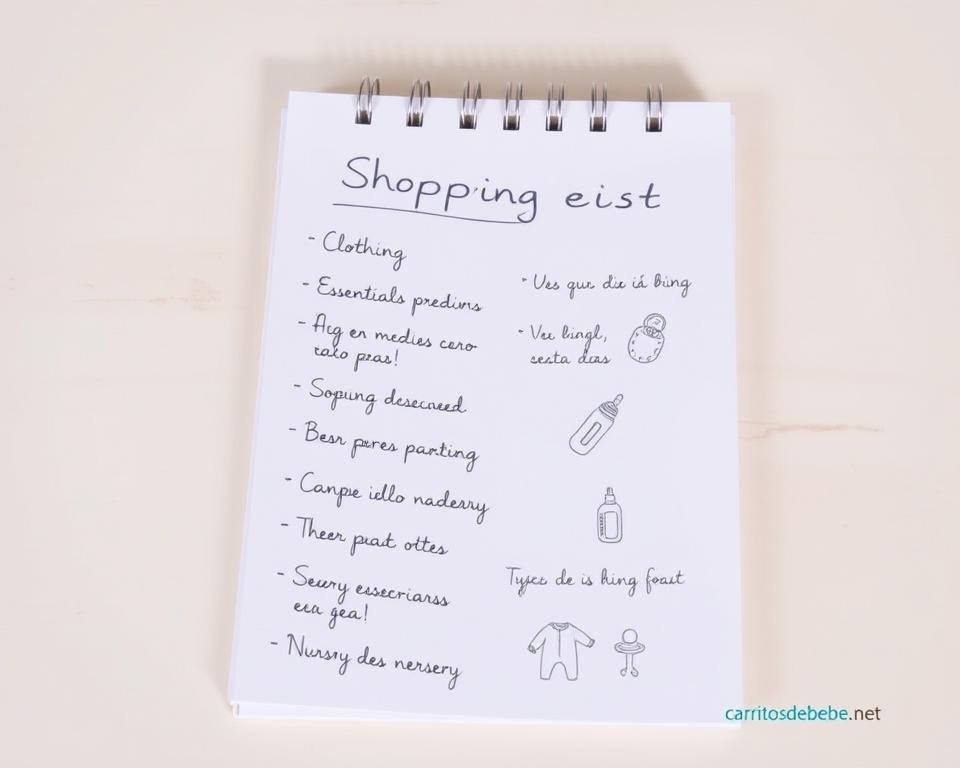 Shopping eist
- Clothing
- Essentials predivis
- Acg en medies cero
tako pras!
- Sopung desecneed
- Besr pires parting
- Canpie idlo naderry
- Theer piat ottes
- Seury essecriarss
eca gea!
- Nursry des nersery
- Ves que die iá bing
- Veu bingl,
sesta dias
Types de is hing foast
carritosdebebe.net